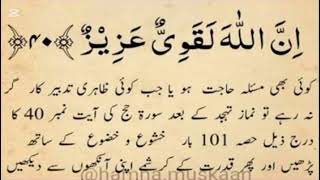 اِنَّ اللّٰهَ لَقَوِیٌّ عَزِیْزٌ ﴿۴۰﴾
کوئی بھی مسئلہ حاجت ہو یا جب کوئی ظاہری تدبیر کار گر
نہ رہے تو نماز تہجد کے بعد سورۃ حج کی آیت نمبر 40 کا
درج ذیل حصہ 101 بار خشوع و خضوع کے ساتھ
پڑھیں اور پھر قدرت کے کرشمے اپنی آنکھوں سے دیکھیں
@hamna.muskaan